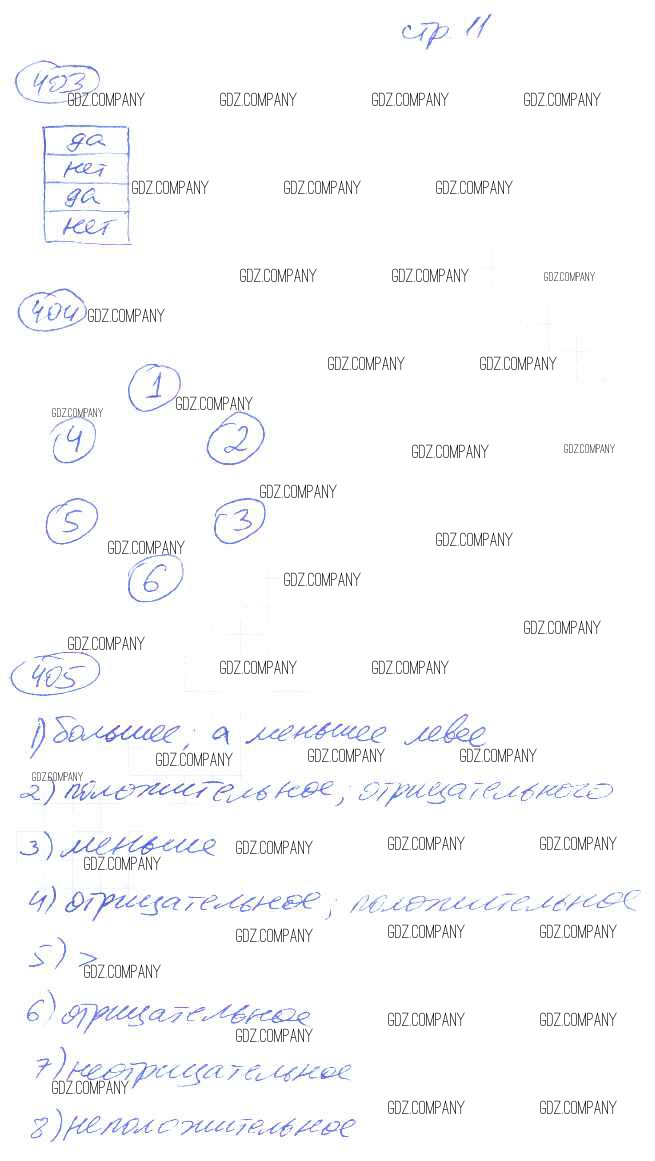 стр 11
403
GDZ.COMPANY GDZ.COMPANY GDZ.COMPANY GDZ.COMPANY
да
нет
GDZ.COMPANY GDZ.COMPANY GDZ.COMPANY
да
нет
GDZ.COMPANY GDZ.COMPANY GDZ.COMPANY
404 GDZ.COMPANY
GDZ.COMPANY GDZ.COMPANY
1
GDZ.COMPANY GDZ.COMPANY
4 2
GDZ.COMPANY GDZ.COMPANY
GDZ.COMPANY
5 3
GDZ.COMPANY GDZ.COMPANY
6 GDZ.COMPANY
GDZ.COMPANY
GDZ.COMPANY
405 GDZ.COMPANY GDZ.COMPANY
1) большее; а меньшее левее
GDZ.COMPANY GDZ.COMPANY GDZ.COMPANY
GDZ.COMPANY
2) положительное; отрицательного
3) меньше GDZ.COMPANY GDZ.COMPANY GDZ.COMPANY
GDZ.COMPANY
4) отрицательное; положительное
GDZ.COMPANY GDZ.COMPANY GDZ.COMPANY
5) >
GDZ.COMPANY
6) отрицательное GDZ.COMPANY GDZ.COMPANY
GDZ.COMPANY
7) неотрицательное
GDZ.COMPANY
GDZ.COMPANY GDZ.COMPANY
8) неположительное